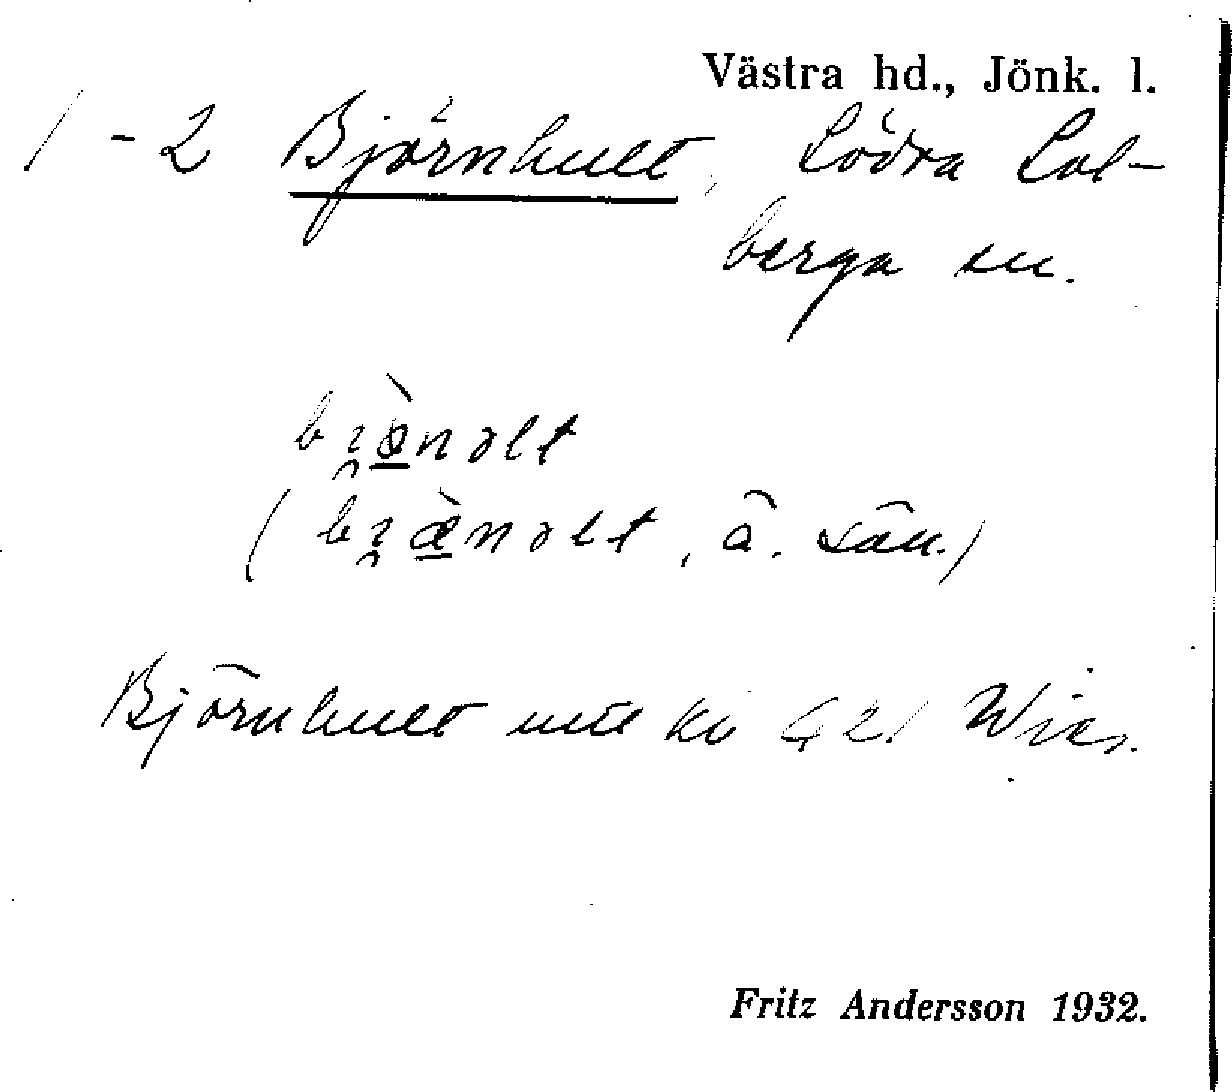 Västra hd., Jönk. l.
1-2 Björnhult, Södra Sol-
berga sn.
bi̯ò̱nəlt
(bi̯æ̱̀nəlt, â. sän.)
Björnhult mtl kr G21 Wies.
Fritz Andersson 1932.